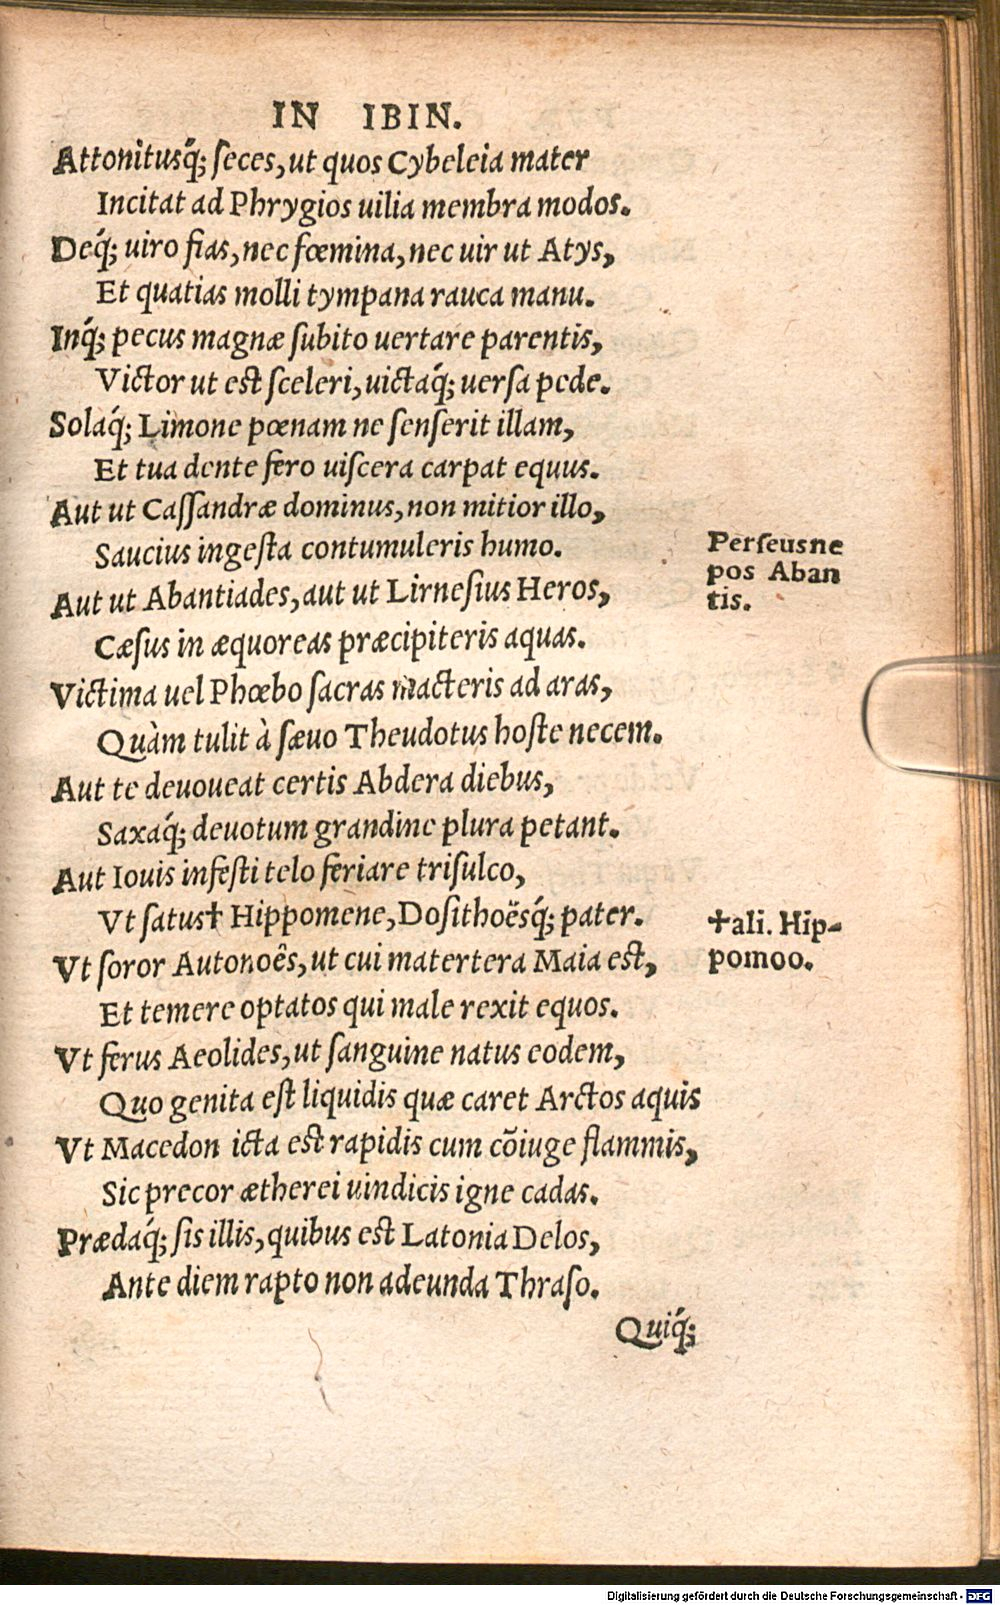 IN IBIN.
Attonitusq́; ſeces, ut quos Cybeleia mater
Incitat ad Phrygios uilia membra modos.
Deq́; uiro fias, nec fœmina, nec uir ut Atys,
Et quatias molli tympana rauca manu.
Inq́; pecus magnæ ſubito uertare parentis,
Victor ut est ſceleri, uictaq́; uerſa pede.
Solaq́; Limone pœnam ne ſenſerit illam,
Et tua dente fero uiſcera carpat equus.
Aut ut Caſſandræ dominus, non mitior illo,
Saucius ingeſta contumuleris humo.
Perſeus ne
pos Aban
tis.
Aut ut Abantiades, aut ut Lirneſius Heros,
Cæſus in æquoreas præcipiteris aquas.
Victima uel Phœbo ſacras macteris ad aras,
Quàm tulit à ſæuo Theudotus hoſte necem.
Aut te deuoueat certis Abdera diebus,
Saxaq́; deuotum grandine plura petant.
Aut Iouis infeſti telo feriare triſulco,
Vt ſatus† Hippomene, Doſithoësq́; pater.
†ali. Hip-
pomoo.
Vt ſoror Autonoês, ut cui matertera Maia est,
Et temere optatos qui male rexit equos.
Vt ferus Aeolides, ut ſanguine natus eodem,
Quo genita eſt liquidis quæ caret Arctos aquis
Vt Macedon icta est rapidis cum cõiuge flammis,
Sic precor ætherei uindicis igne cadas.
Prædaq́; ſis illis, quibus est Latonia Delos,
Ante diem rapto non adeunda Thraſo.
Quiq́;
Digitalisierung gefördert durch die Deutsche Forschungsgemeinschaft - DFG